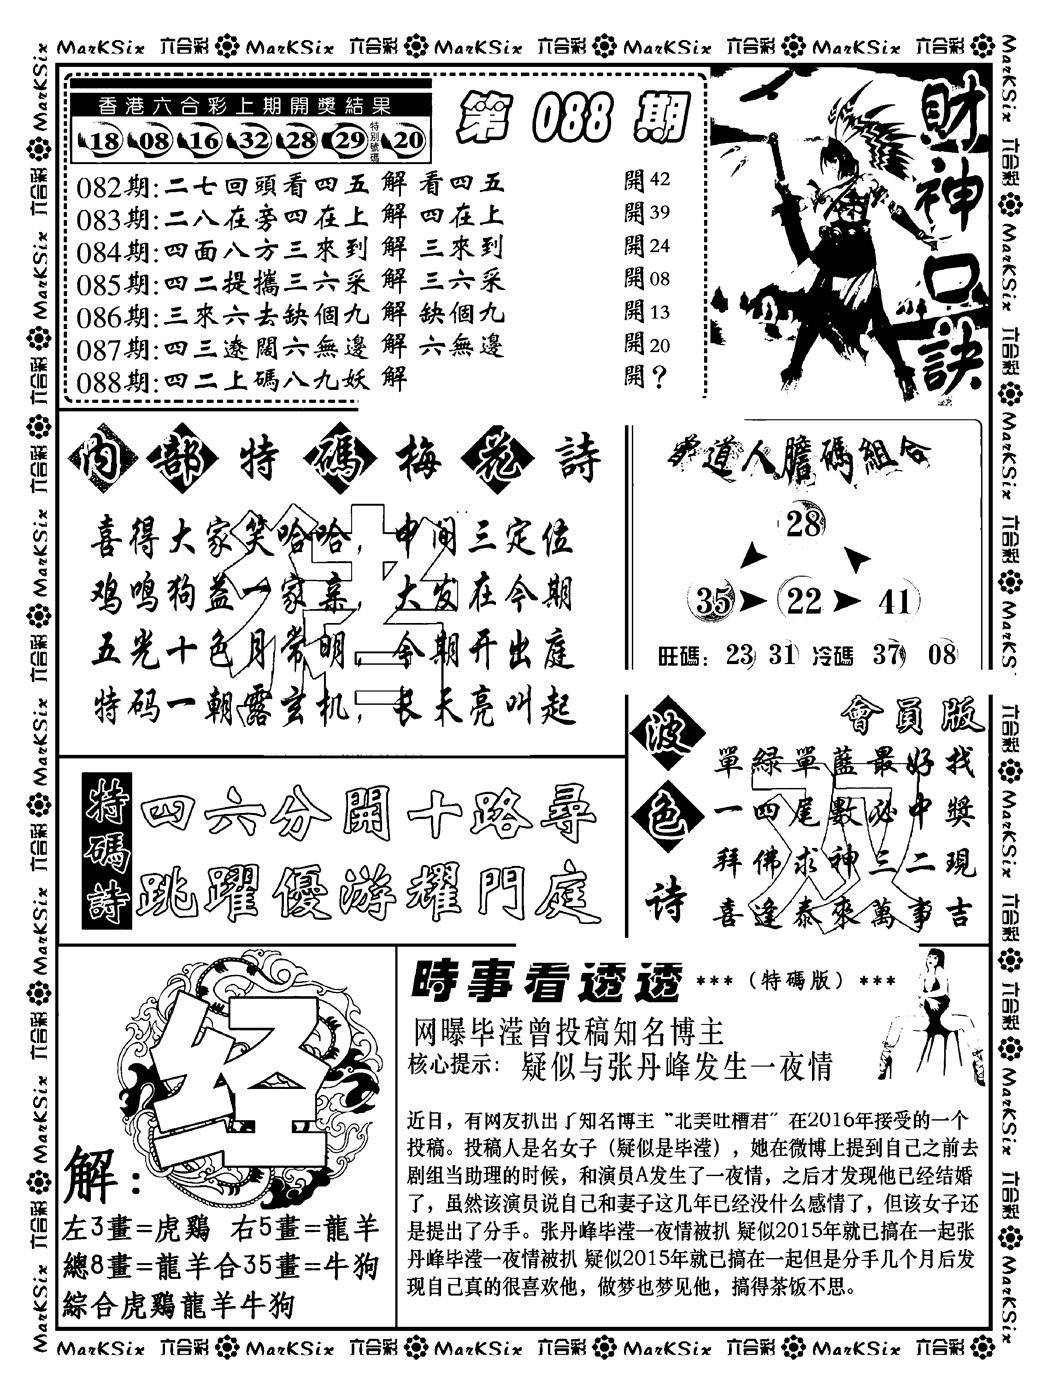 MarKSix 六合彩 MarKSix 六合彩 MarKSix 六合彩 MarKSix 六合彩 MarKSix 六合彩
香港六合彩上期開獎結果
18 08 16 32 28 29 特別號碼 20
第 088 期
財神口訣
082期:二七回頭看四五 解 看四五 開42
083期:二八在旁四在上 解 四在上 開39
084期:四面八方三來到 解 三來到 開24
085期:四二提攜三六采 解 三六采 開08
086期:三來六去缺個九 解 缺個九 開13
087期:四三遼闊六無邊 解 六無邊 開20
088期:四二上碼八九妖 解 開?
內部特碼梅花詩
喜得大家笑哈哈，中间三定位
鸡鸣狗益一家亲，大发在今期
五光十色月常明，今期开出庭
特码一朝露玄机，长天亮叫起
道人膽碼組合
28
35 22 41
旺碼: 23 31 冷碼 37 08
特碼詩
四六分開十路尋
跳躍優游耀門庭
波色诗
會員版
單緑單藍最好找
一四尾數必中獎
拜佛求神三二現
喜逢泰來萬事吉
解:
左3畫=虎鷄 右5畫=龍羊
總8畫=龍羊合35畫=牛狗
綜合虎鷄龍羊牛狗
時事看透透 ***（特碼版）***
网曝毕滢曾投稿知名博主
核心提示: 疑似与张丹峰发生一夜情
近日，有网友扒出了知名博主“北美吐槽君”在2016年接受的一个
投稿。投稿人是名女子（疑似是毕滢），她在微博上提到自己之前去
剧组当助理的时候，和演员A发生了一夜情，之后才发现他已经结婚
了，虽然该演员说自己和妻子这几年已经没什么感情了，但该女子还
是提出了分手。张丹峰毕滢一夜情被扒 疑似2015年就已搞在一起张
丹峰毕滢一夜情被扒 疑似2015年就已搞在一起但是分手几个月后发
现自己真的很喜欢他，做梦也梦见他，搞得茶饭不思。
MarKSix 六合彩 MarKSix 六合彩 MarKSix 六合彩 MarKSix 六合彩 MarKSix 六合彩